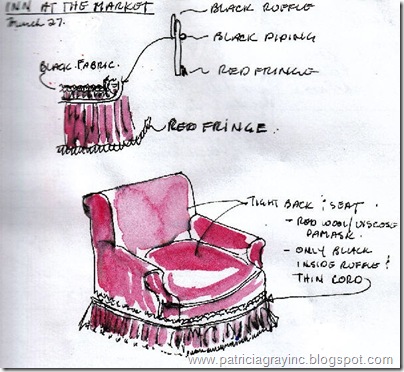 INN AT THE MARKET
March 27.
BLACK RUFFLE
BLACK PIPING
RED FRINGE
BLACK FABRIC.
RED FRINGE.
TIGHT BACK & SEAT
- RED WOOL/VISCOSE
DAMASK.
- ONLY BLACK
INSIDE RUFFLE &
THIN CORD
www.patriciagrayinc.blogspot.com